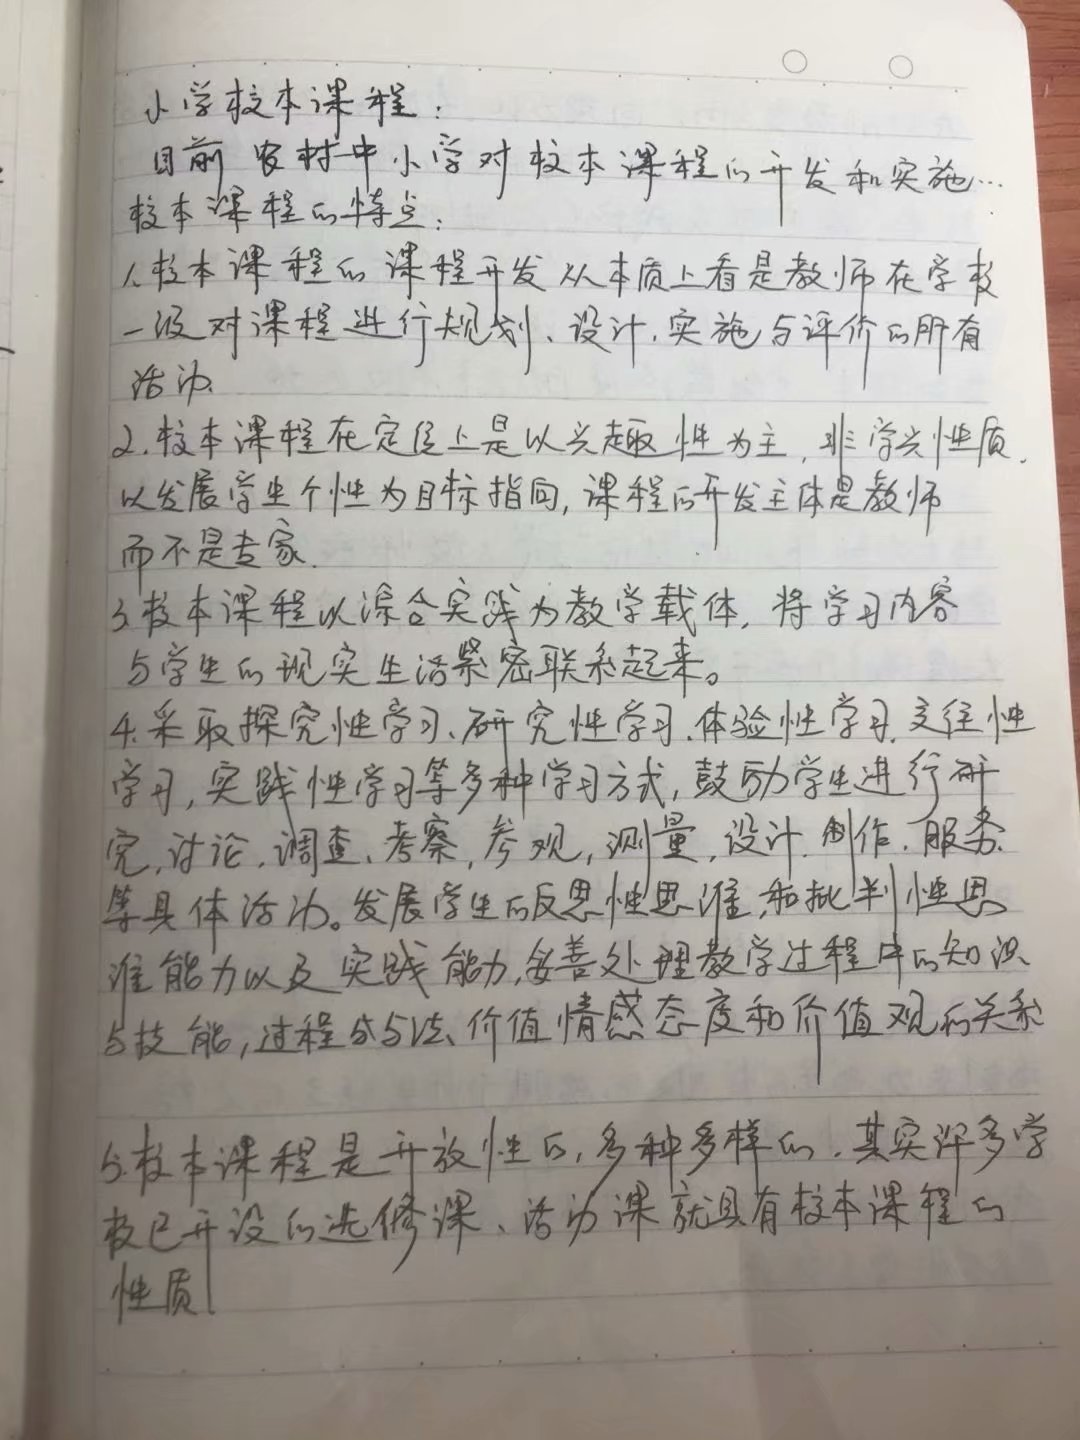 小学校本课程:
目前农村中小学对校本课程的开发和实施…
校本课程的特点:
1.校本课程的课程开发从本质上看是教师在学校
一级对课程进行规划、设计、实施与评价的所有
活动.
2.校本课程在定位上是以兴趣性为主,非学兴性质,
以发展学生个性为目标指向,课程的开发主体是教师
而不是专家.
3.校本课程以综合实践为教学载体,将学习内容
与学生的现实生活紧密联系起来。
4.采取探究性学习、研究性学习、体验性学习、交往性
学习,实践性学习等多种学习方式,鼓励学生进行研
究,讨论,调查、考察,参观,测量,设计、制作、服务
等具体活动。发展学生的反思性思维,和批判性思
维能力以及实践能力,妥善处理教学过程中的知识
与技能,过程与方法、价值情感态度和价值观的关系
5.校本课程是开放性的,多种多样的,其实许多学
校已开设的选修课、活动课就具有校本课程的
性质